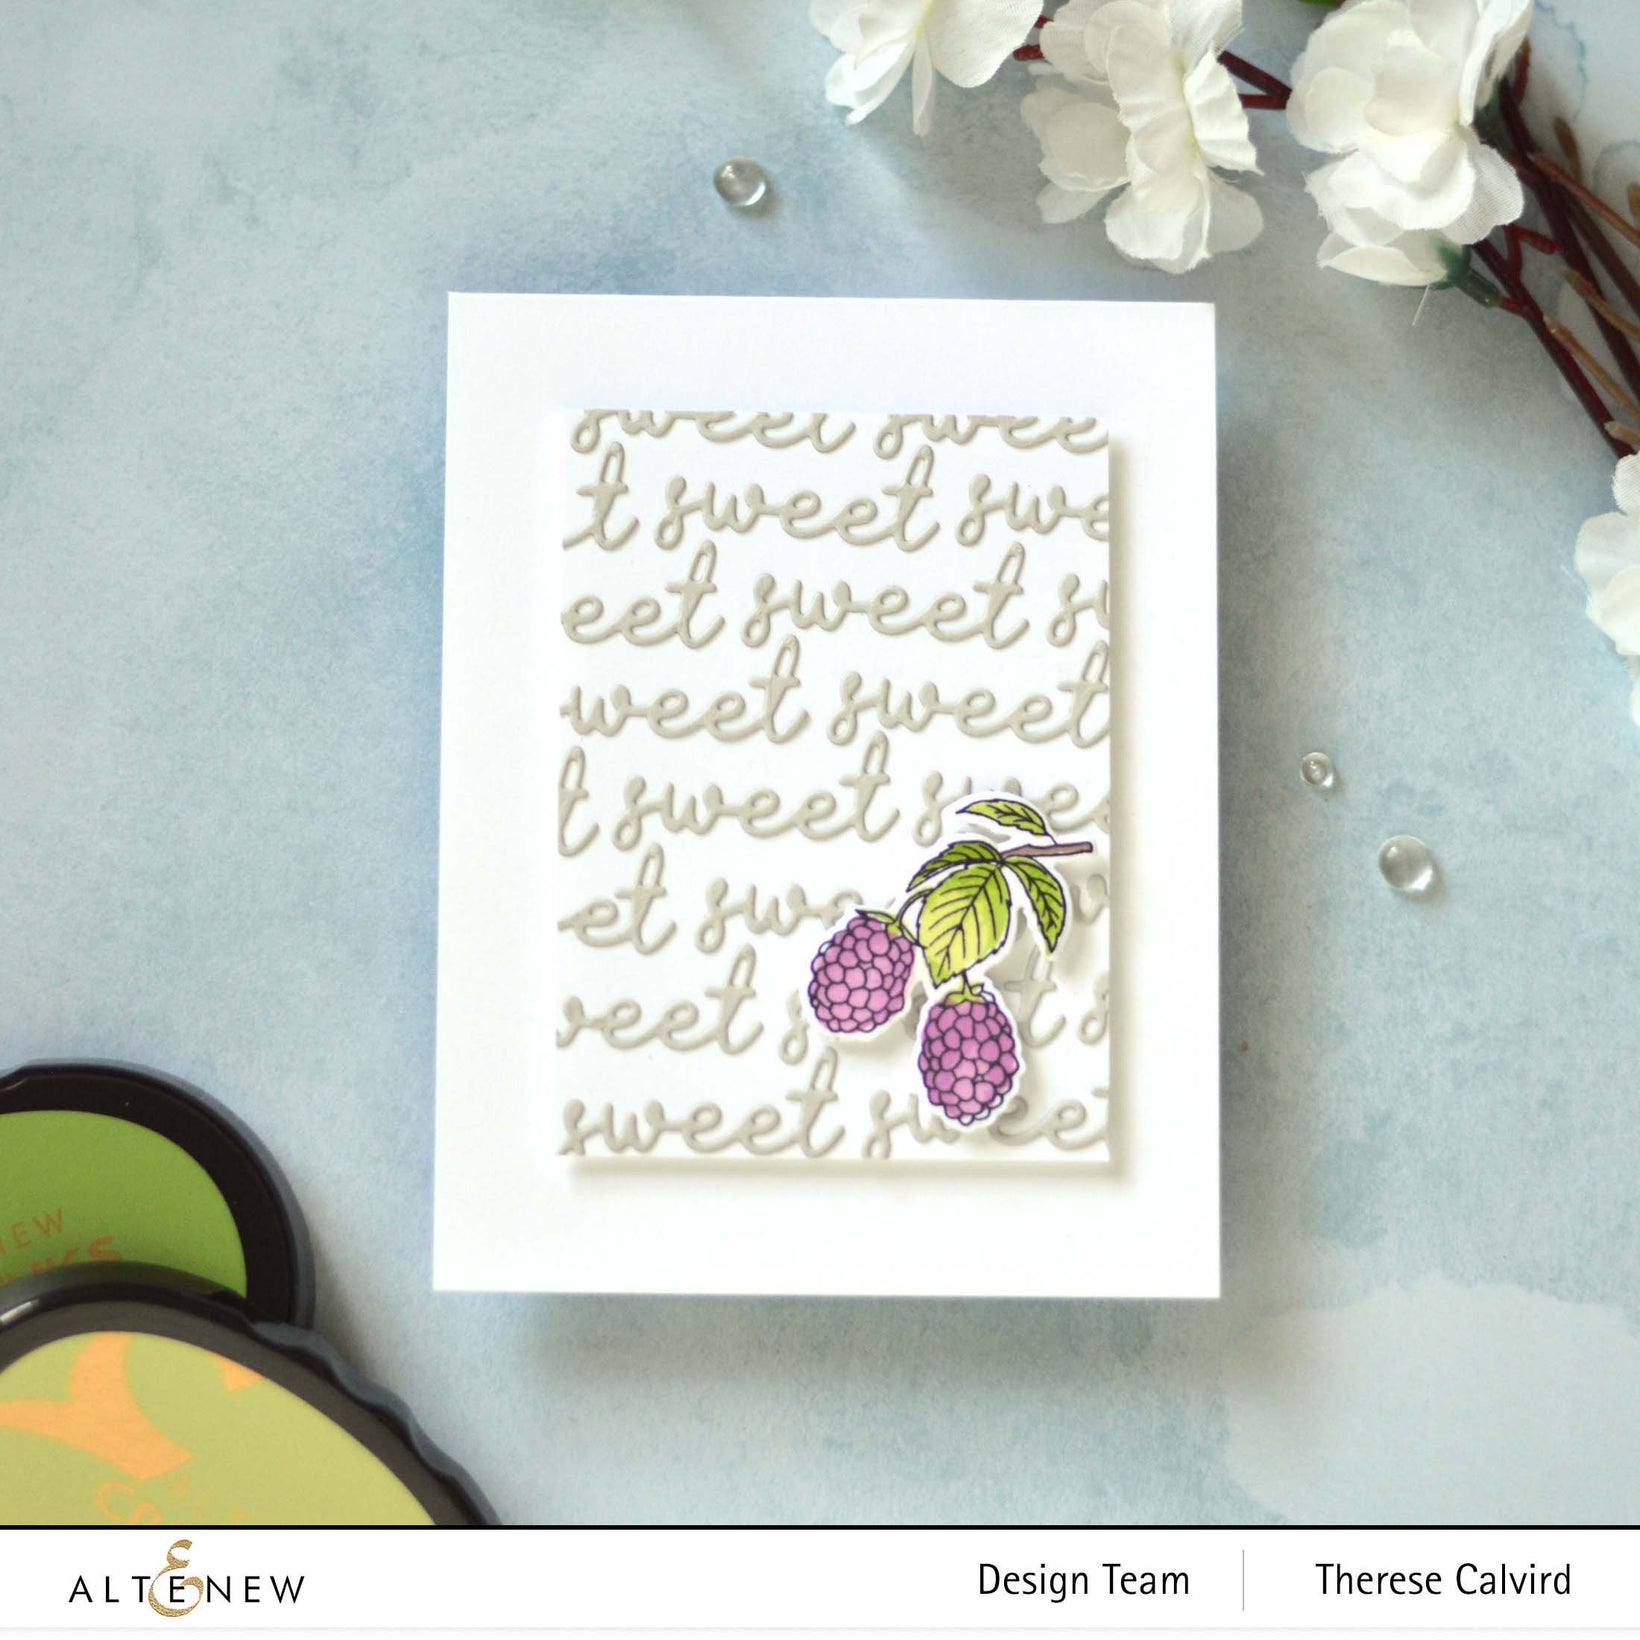 sweet swee
t sweet swe
eet sweet sw
weet sweet
t sweet swee
eet swe
weet s t s
sweet sw eet
NEW
ALTENEW
Design Team
Therese Calvird